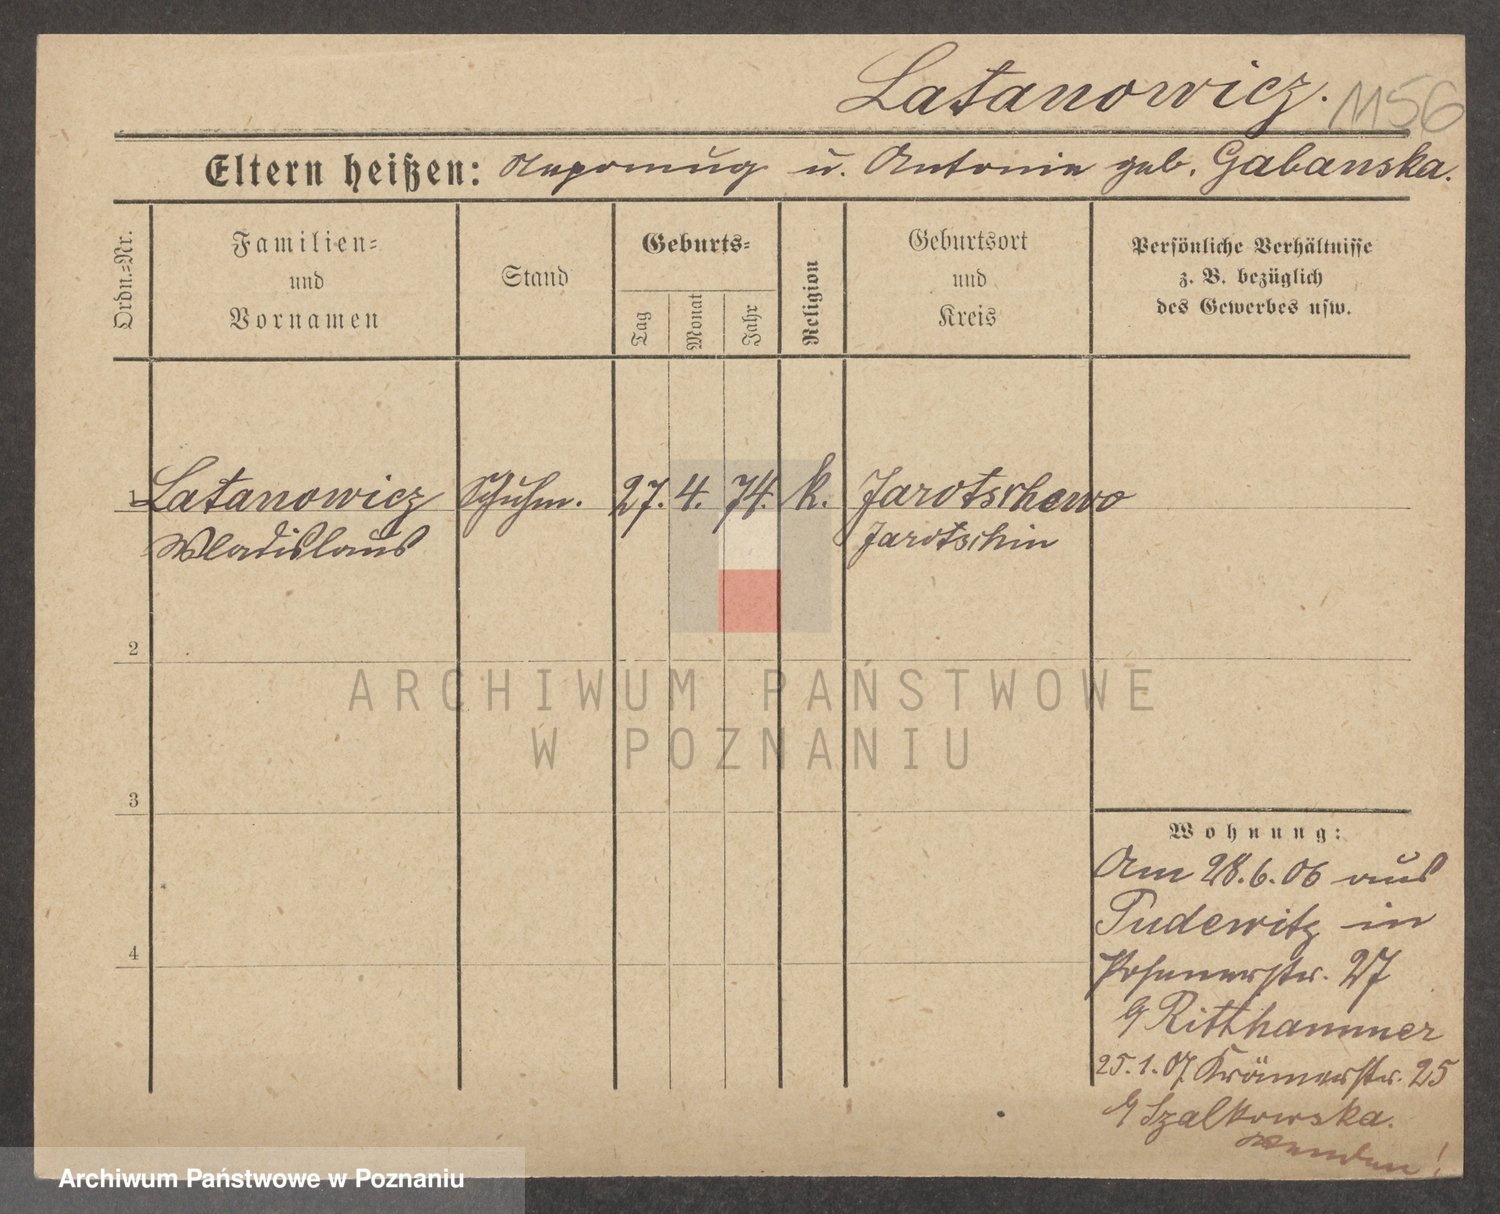 Latanowicz. 1156
Eltern heißen: Nepomuz u. Antonie geb. Gabanska.
Ordn.=Nr.
Familien=
und
Vornamen
Stand
Geburts=
Tag
Monat
Jahr
Religion
Geburtsort
und
Kreis
Persönliche Verhältnisse
z. B. bezüglich
des Gewerbes usw.
1 Latanowicz Schuhm. 27. 4. 74. k. Jarotschewo
Wladislaus Jarotschin
2
3
4
Wohnung:
Am 28.6.06 aus
Pudewitz in
Posenerstr. 27
b/ Ritthammer
25.1.07. Krämerstr. 25
b/ Szalkowska.
wenden!
ARCHIWUM PAŃSTWOWE
W POZNANIU
Archiwum Państwowe w Poznaniu